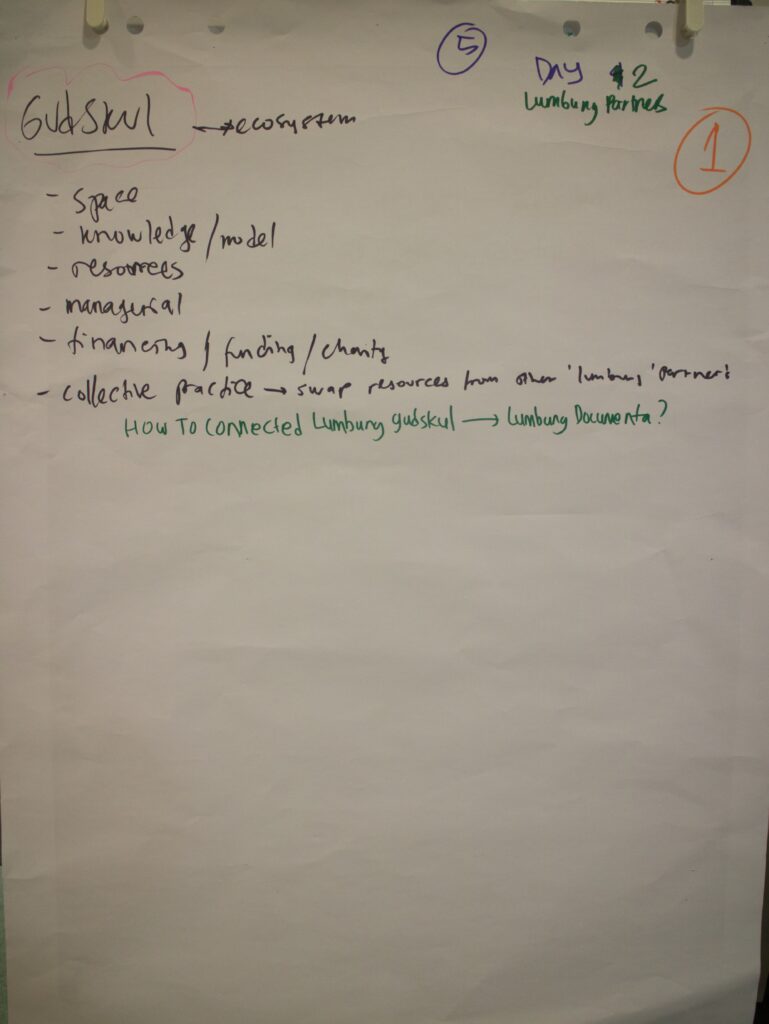 5
DAY 2
Lumbung Partners
1
GUDSKUL → ecosystem
- space
- knowledge/model
- resources
- managerial
- financing / funding / charity
- collective practice → swap resources from other 'lumbung' partners
HOW TO CONNECTED Lumbung gudskul → Lumbung Documenta?